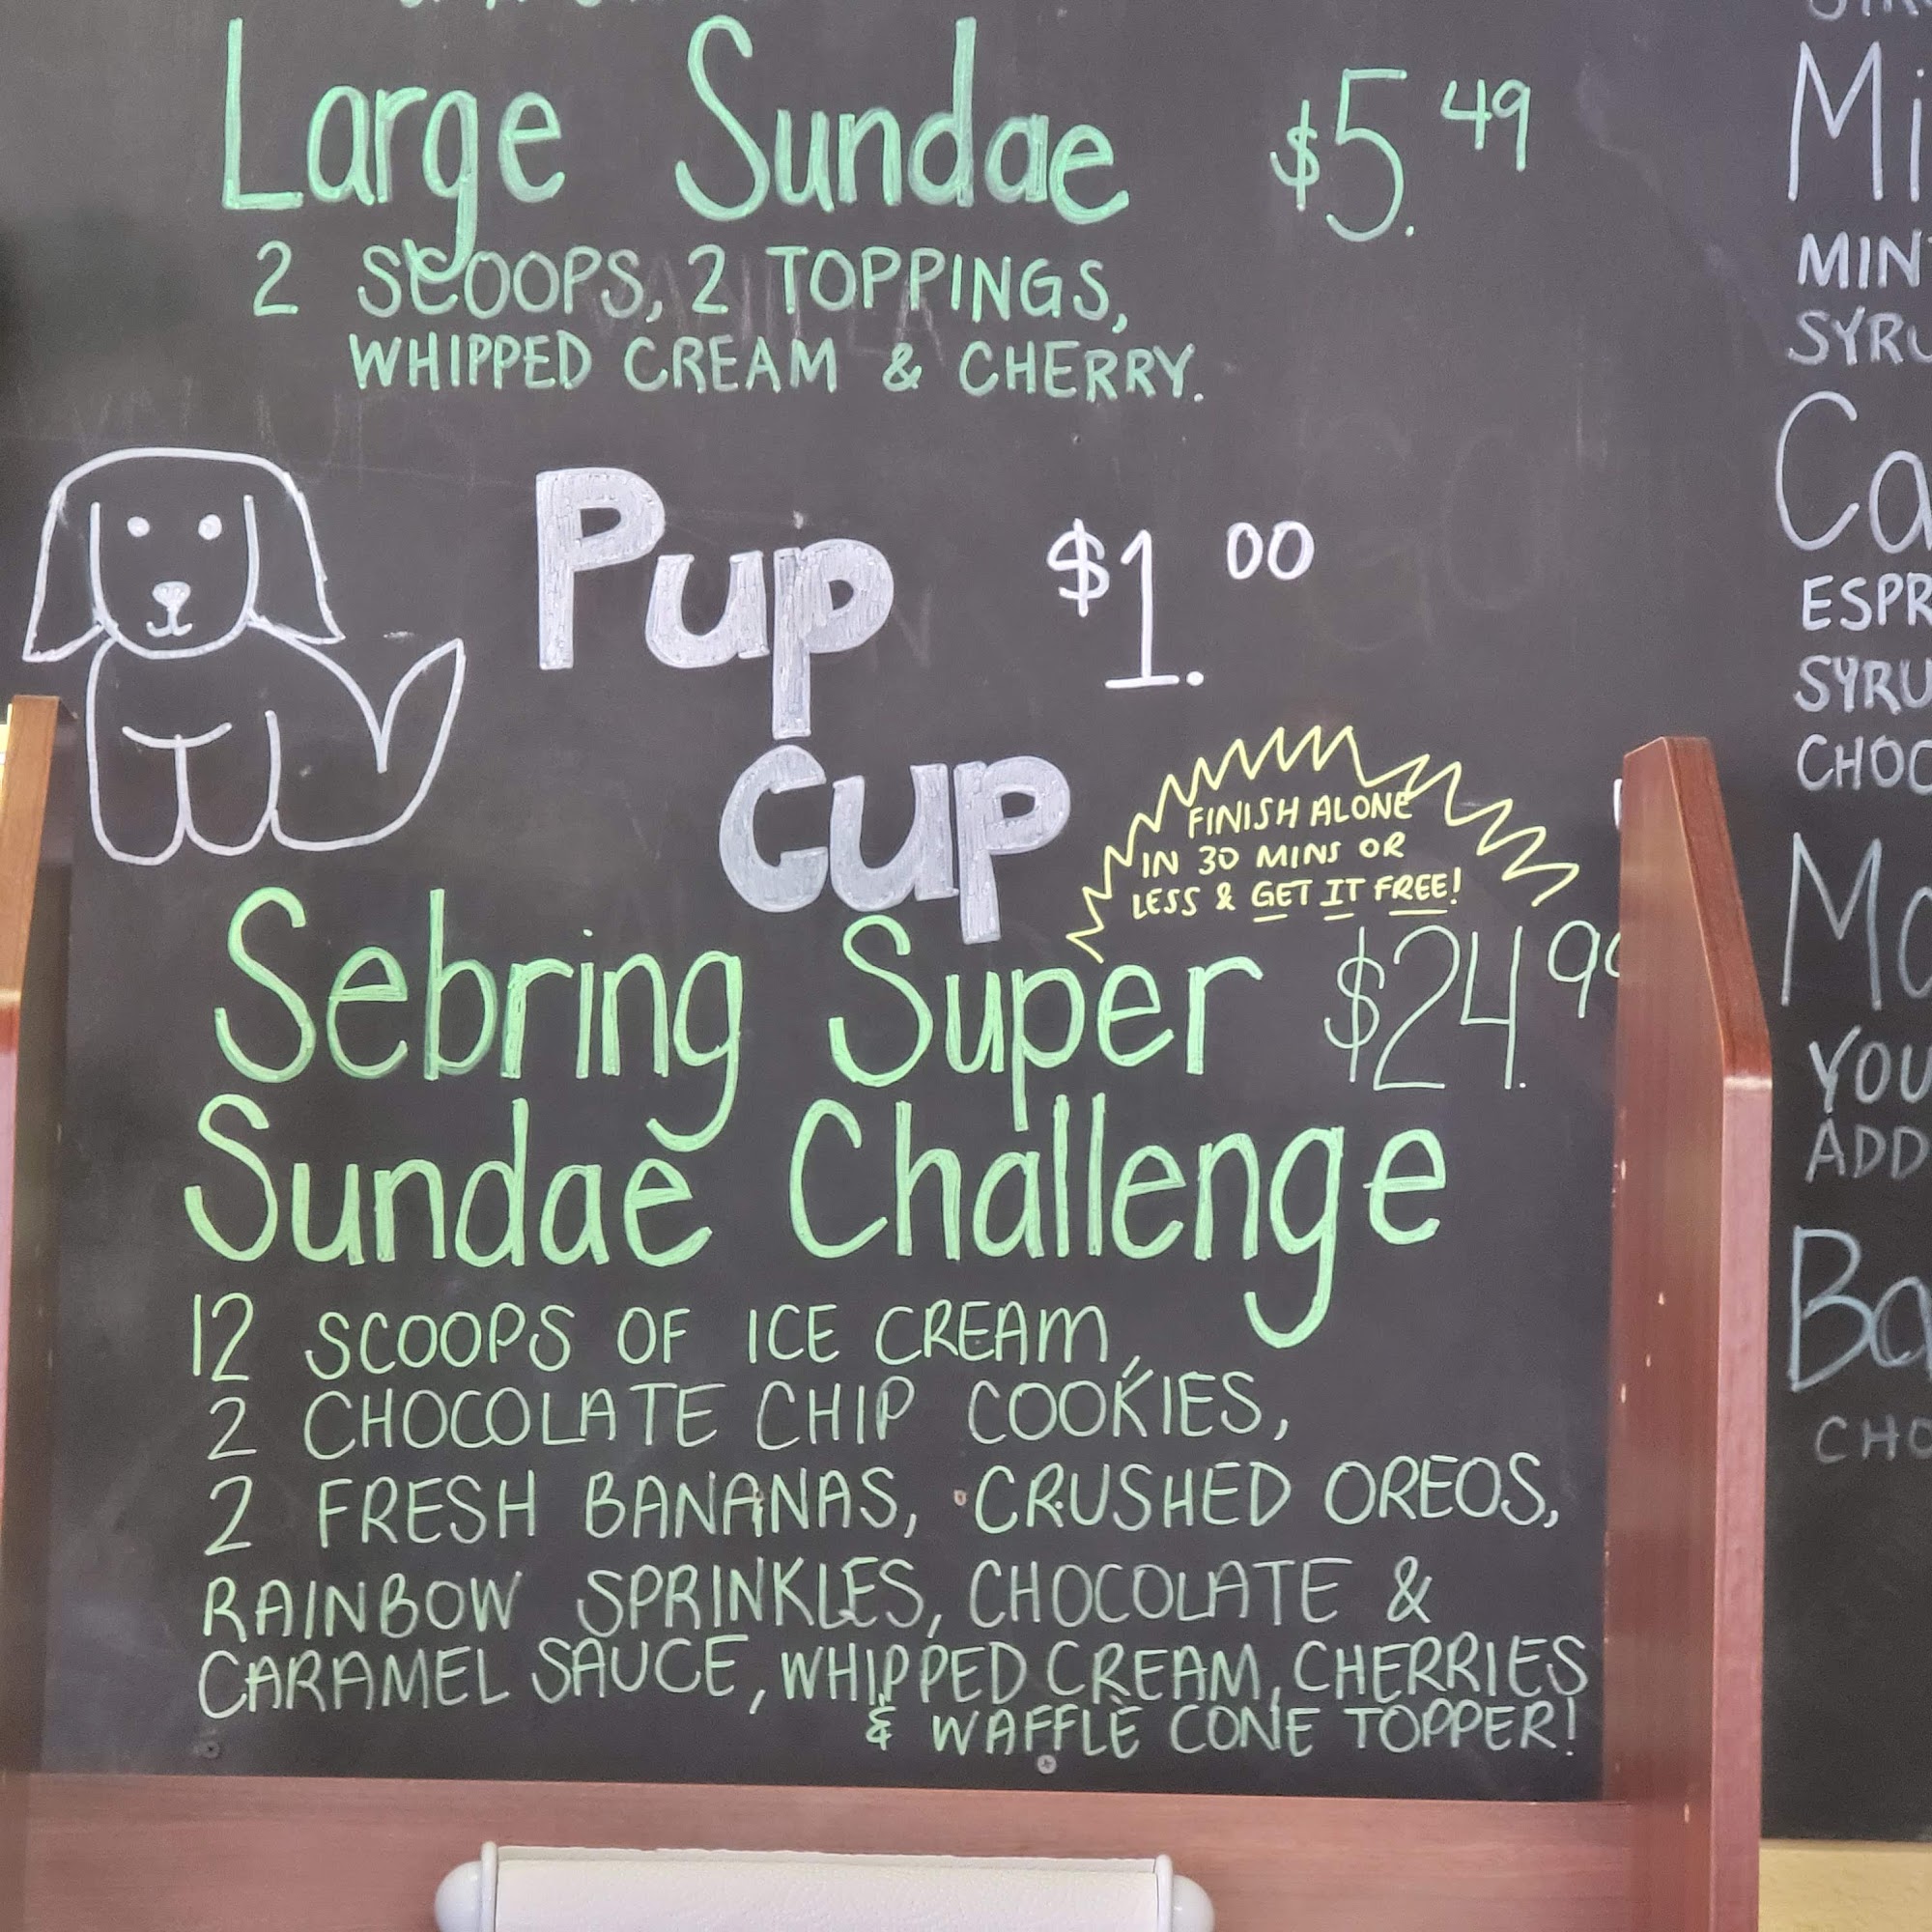 Large Sundae $5.49
2 SCOOPS, 2 TOPPINGS,
WHIPPED CREAM & CHERRY.
Pup $1.00
Cup
FINISH ALONE
IN 30 MINS OR
LESS & GET IT FREE!
Sebring Super $24.9
Sundae Challenge
12 SCOOPS OF ICE CREAM,
2 CHOCOLATE CHIP COOKIES,
2 FRESH BANANAS, CRUSHED OREOS,
RAINBOW SPRINKLES, CHOCOLATE &
CARAMEL SAUCE, WHIPPED CREAM, CHERRIES
& WAFFLE CONE TOPPER!
Mi
MIN
SYRU
Ca
ESPR
SYRU
CHOC
Mo
YOU
ADD
Ba
CHO